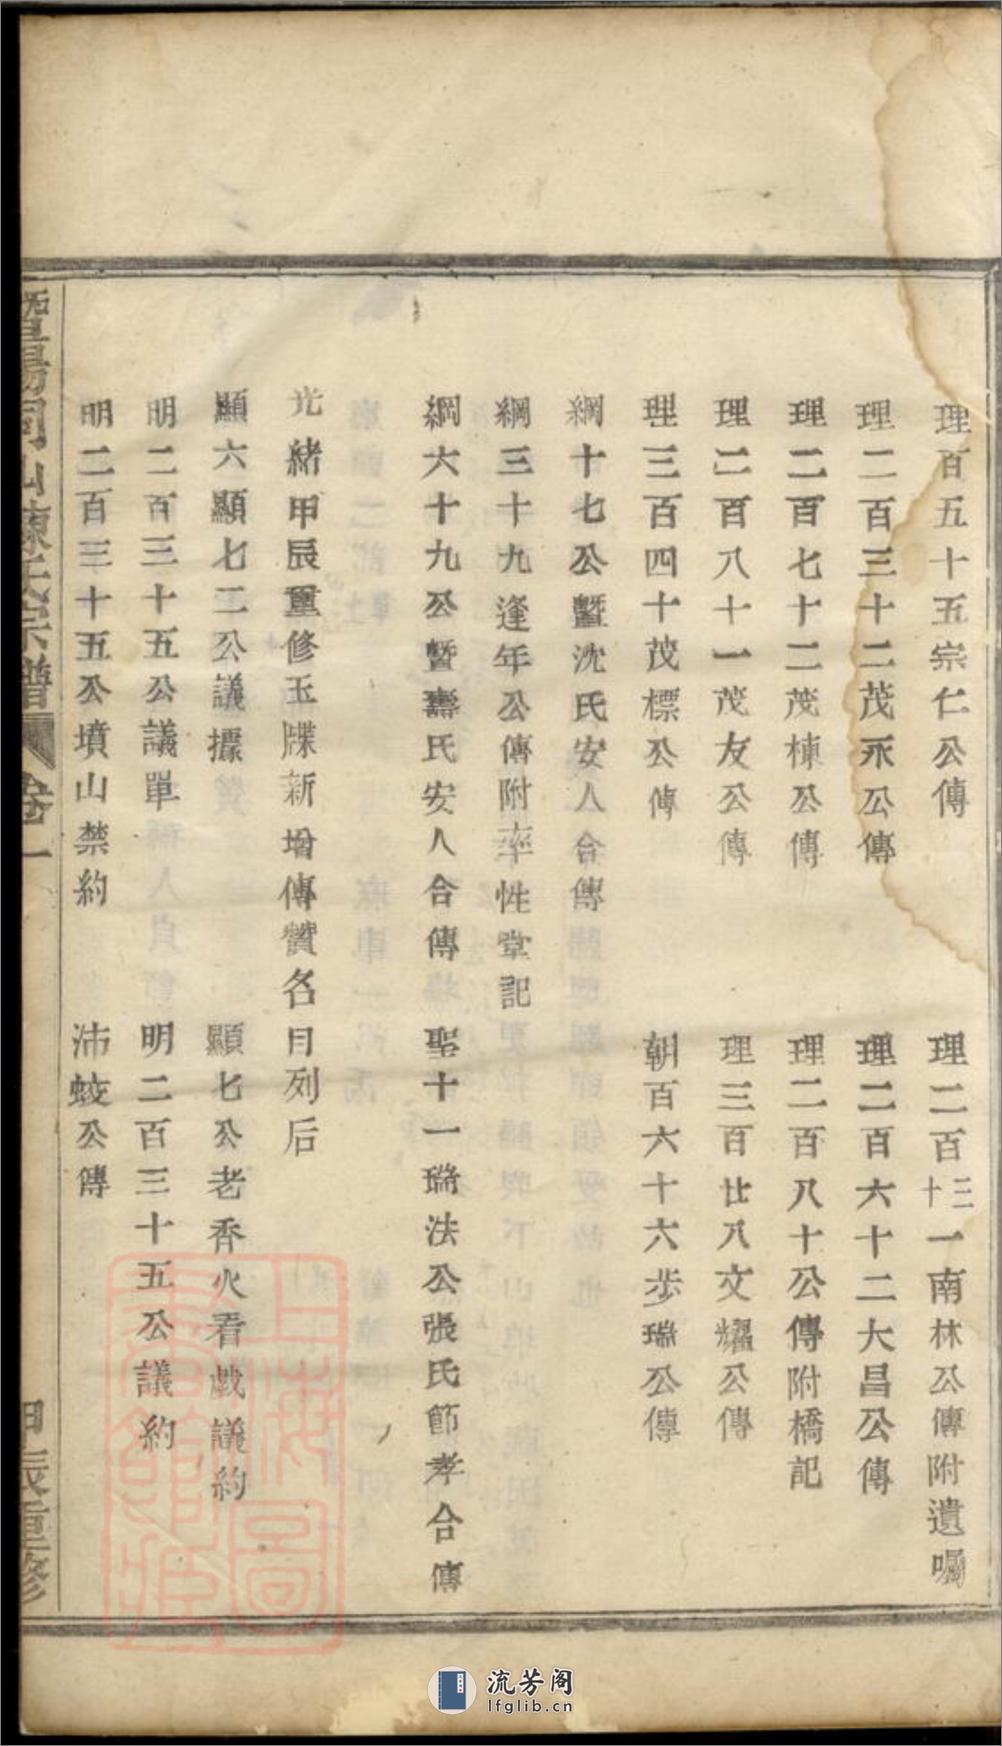 理百五十五宗仁公傳　理二百三十一南林公傳附遺囑
理二百三十二茂永公傳　理二百六十二大昌公傳
理二百七十二茂棟公傳　理二百八十公傳附橋記
理二百八十一茂友公傳　理三百廿八文耀公傳
理三百四十茂標公傳　朝百六十六步瑞公傳
綱十七公暨沈氏安人合傳
綱三十九逢年公傳附率性堂記
綱六十九公暨壽氏安人合傳　聖十一瑞法公張氏節孝合傳
光緒甲辰重修玉牒新增傳贊名目列后
顯六顯七二公議據　顯七公老香火看戲議約
明二百三十五公議單　明二百三十五公議約
明二百三十五公墳山禁約　沛蛟公傳
暨陽同山陳氏宗譜　卷一　甲辰重修
上海圖書館藏
流芳阁
lfglib.cn